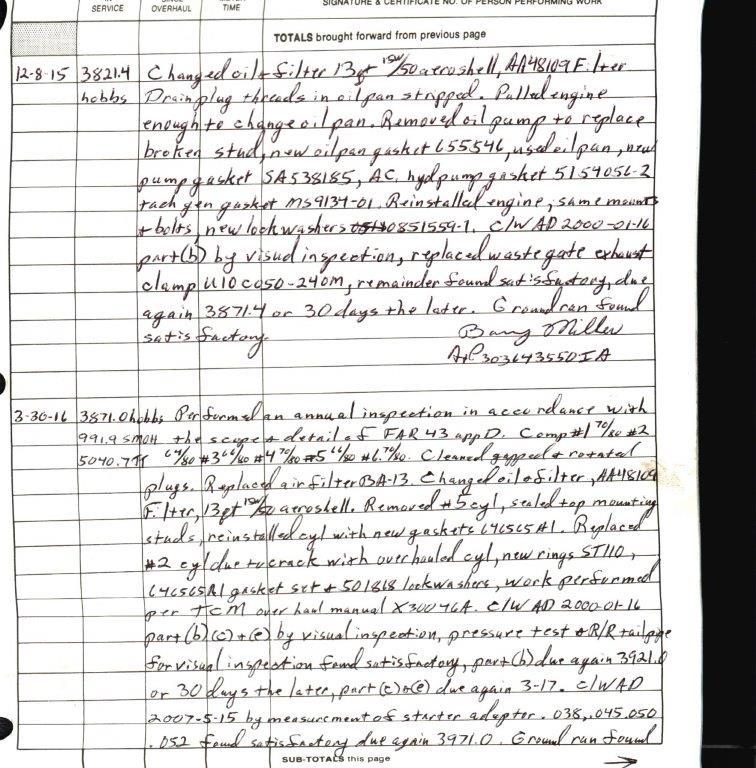 SIGNATURE & CERTIFICATE NO. OF PERSON PERFORMING WORK
IN SERVICE
SINCE OVERHAUL
TIME
TOTALS brought forward from previous page
12-8-15 3821.4 Changed oil & filter 13qt 15W/50 aeroshell, AA48109 Filter
hobbs Drain plug threads in oil pan stripped. Pulled engine
enough to change oil pan. Removed oil pump to replace
broken stud, new oil pan gasket 655546, used oil pan, new
pump gasket SA538185, AC, hyd pump gasket 5154056-2
tach gen gasket MS9134-01. Reinstalled engine, same mounts
& bolts, new lockwashers 0851559-1. C/W AD 2000-01-16
part (b) by visual inspection, replaced wastegate exhaust
clamp U10C050-240M, remainder found satisfactory, due
again 3871.4 or 30 days the later. Ground run found
satisfactory. Barry Miller
A&P 303643550 IA
3-30-16 3871.0 hobbs Performed an annual inspection in accordance with
991.9 SMOH the scope & detail of FAR 43 app D. Comp #1 70/80 #2
5040.7 TT 64/80 #3 66/80 #4 70/80 #5 66/80 #6 70/80. Cleaned gapped & rotated
plugs. Replaced air filter BA-13. Changed oil & filter, AA48109
Filter, 13qt 15W/50 aeroshell. Removed #5 cyl, sealed top mounting
studs, reinstalled cyl with new gaskets 646565A1. Replaced
#2 cyl due to crack with overhauled cyl, new rings ST110,
646565A1 gasket set & 501868 lockwashers, work performed
per TCM overhaul manual X30046A. C/W AD 2000-01-16
part (b) (c) & (e) by visual inspection, pressure test & R/R tailpipe
for visual inspection found satisfactory, part (b) due again 3921.0
or 30 days the later, part (c) & (e) due again 3-17. C/W AD
2007-5-15 by measurement of starter adapter .038, .045 .050
.052 found satisfactory due again 3971.0. Ground run found
SUB-TOTALS this page